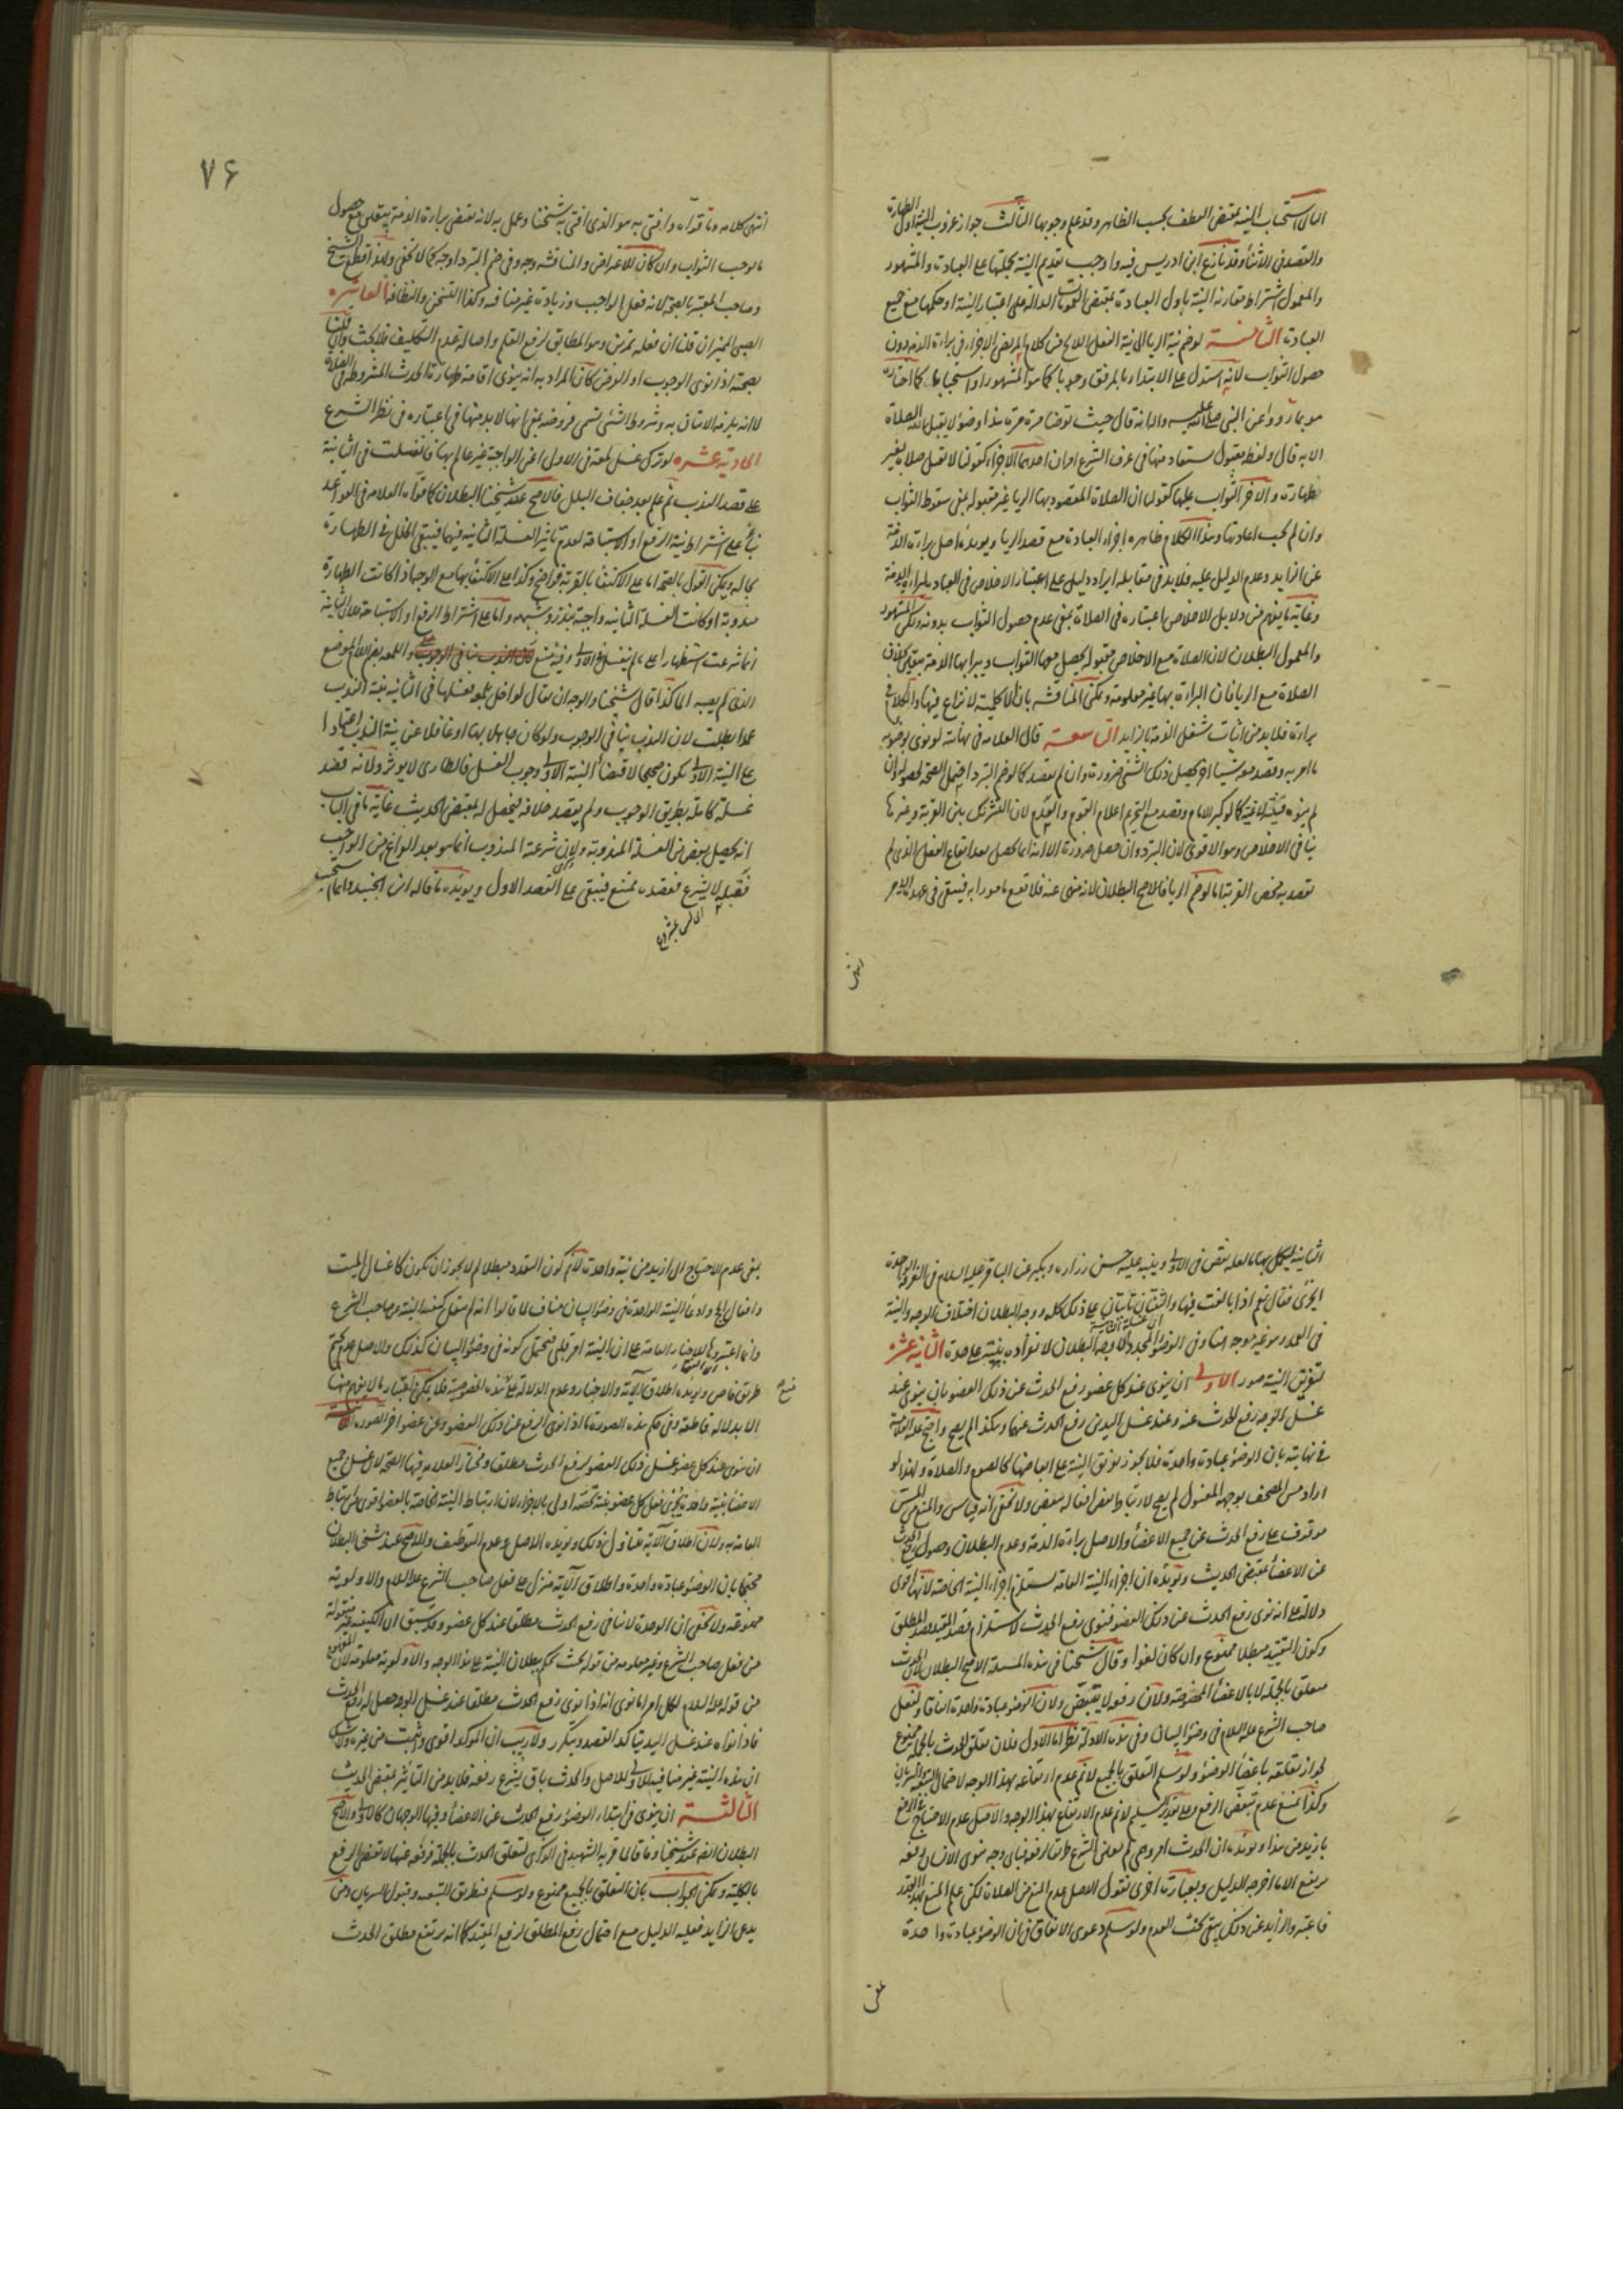 والقصد فی الاثناء وقد نازع ابن ادریس فیه واوجب تقدیم النیة بجملتها علی العبادة والمشهور
والمعمول اشتراط مقارنة النیة باول العبادة بمقتضی الدالة علی اعتبار النیة او حکمها مع جمیع
العبادة الثامنة لو ضم نیة الریا الی نیة الفعل من کلام المرتضی الاجزاء فی براءة الذمه دون
حصول الثواب لانه استدل علی الابتداء بالمرفق وجوبا کما هو المشهور او استحبابا کما اختاره
هو بما رووا عن النبی صلی الله علیه واله انه قال حیث توضا مرة مرة هذا وضوء لا یقبل الله الصلاة
الا به قال ولفظ مقبول یستفاد منها فی عرف الشرع امران احدهما الاجزاء کقولنا لا تقبل صلاة بغیر
طهارة والآخر الثواب علیها کقولنا ان الصلاة المقصود بها الریا غیر مقبولة بمعنی سقوط الثواب
وان لم یجب اعادتها وهذا الکلام ظاهره اجزاء العبادة مع قصد الریا ویؤیده اصل براءة الذمة
عن الزاید وعدم الدلیل علیه فلابد فی مقابله ایراد دلیل علی اعتبار الاخلاص فی العبادة
وغایة ما یفهم من دلایل الاخلاص اعتباره فی الصلاة بمعنی عدم حصول الثواب بدونه
والمعمول البطلان لان الصلاة مع الاخلاص مقبولة یحصل معها الثواب ویبرا بها الذمة بیقین بخلاف
الصلاة مع الریا فان البراءة بها غیر معلومة ویمکن المناقشه بان الکلیة لا نزاع فیها والکلام فی
براءة فلابد من اثبات شغل الذمة بالزاید التاسعة قال العلامه فی نهایته لو نوی بوضوئه
ما امر به وقصد معه شیئا آخر یحصل ذلک الشئ ضرورة وان لم یقصد کما لو ضم التبرد احتمل الصحة
لم ینوه کما لو کبر الامام وقصد مع التحریم اعلام القوم والعدم لان التشریک بین القربة وغیرها
ینافی الاخلاص وهو الاقوی لان التبرد وان حصل ضرورة الا انه انما یحصل بعد ایقاع الفعل الذی لم
یقصد به محض القربة اما لو ضم الریا فالاصح البطلان لانه منهی عنه فلا یقع مامورا به فیبقی فی عهدة الامر
انتهی
۷۶
انتهی کلامه وما قواه وافتی به هو الذی افتی به شیخنا وعمل به لانه یقتضی براءة الذمة بیقین مع حصول
ما یوجب الثواب وان کان للاعتراض والمناقشه وجه وفی ضم التبرد اوجه کما لا یخفی
وصاحب المعتبر بالصحة لانه فعل الواجب وزیادة غیر منافیه وکذا التسخن والنظافه العاشره
الصبی الممیز ان قلنا ان فعله تمرین وهو المطابق لرفع القلم واصالة عدم التکلیف فلا بحث وان قلنا
بصحته اذا نوی الوجوب او الفرض کان المراد به انه ینوی اقامة طهارة الحدث المشروطه فی الصلاة
لا انه یلزمه الاتیان به وشروط الشئ تسمی فروضه بمعنی انها لابد منها فی اعتباره فی نظر الشرع
الحادیة عشره لو ترک غسل لمعة فی الاولی اعنی الواجبة غیر عالم بها فانغسلت فی الثانیة
علی قصد الندب ثم علم بعد جفاف البلل فالاصح عند شیخنا البطلان کما قواه العلامه فی القواعد
بناء علی اشتراط نیة الرفع او الاستباحة لعدم تاثیر الغسلة الثانیه فیهما فیبقی الخلل فی الطهارة
بحاله ویمکن القول بالصحة اما علی الاکتفاء بالقربة فواضح وکذا علی الاکتفاء بها مع الوجه اذا کانت الطهارة
مندوبة او کانت الغسلة الثانیه واجبة بنذر وشبهه واما علی اشتراط الرفع او الاستباحة
انما شرعت استظهارا علی ما لم ینغسل فی الاولی
الذی لم یصبه الماء کذا قال شیخنا والوجه ان یقال لو اخل بلمعة فغسلها فی الثانیه بنیة الندب
عمدا بطلت لان الندب ینافی الوجوب ولو کان جاهلا بها او غافلا عن نیة الندب اعتمادا
علی النیة الاولی یکون صحیحا لاقتضاء النیة الاولی وجوب الغسل فالطاری لا یؤثر ولانه قصد
غسلة کاملة بطریق الوجوب ولم یقصد خلافه فیحصل له بمقتضی الحدیث غایة ما فی الباب
انه یحصل بعض من الغسلة المندوبة ولان شرعیة المندوب انما هو بعد الفراغ من الواجب
فقبله لا یشرع فقصده ممتنع فیبقی علی القصد الاول ویؤیده ما قاله ابن الجنید
الثانیة لیکمل بها ما لعله نقص فی الاولی وینبه علیه حسن زراره وبکیر عن الباقر علیه السلام فی الغرفة الواحدة
اتجزی فقال نعم اذا بالغت فیها والثنتان تاتیان علی ذلک کله ووجه البطلان اختلاف الوجه والنیة
الثانیة عشر
لتفریق النیة صور الاولی ان ینوی عند کل عضو رفع الحدث عن ذلک العضو بان ینوی عند
غسل الوجه رفع الحدث عنه وعند غسل الیدین رفع الحدث عنهما وهکذا لم یصح واحتج علیه العلامة
فی نهایته بان الوضوء عبادة واحدة فلا یجوز تفریق النیة علی ابعاضها کالصوم والصلاة ولهذا لو
اراد مس المصحف بوجهه المغسول لم یصح لارتباط بعض افعاله ببعض ولا یخفی انه قیاس والمنع من المس
موقوف علی رفع الحدث عن جمیع الاعضاء والاصل براءة الذمة وعدم البطلان وحصول رفع الحدث
عن الاعضاء بمقتضی الحدیث ویؤیده ان اجزاء النیة العامة یستلزم اجزاء النیة الخاصة لانها اقوی
دلالة علی انه نوی رفع الحدث عن ذلک العضو فنوی رفع الحدث لاستلزام قصد المقید قصد المطلق
وکون التقیید مبطلا ممنوع وان کان لغوا وقال شیخنا فی هذه المسئلة الاصح البطلان لان الحدث
متعلق بالجملة لا بالاعضاء المخصوصة ولان رفعه لا یتبعض ولان الوضوء عبادة واحدة اتفاقا ولفعل
صاحب الشرع علیه السلام فی وضوء البیان وفی هذه الادلة نظر اما الاول فلان تعلق الحدث بالجملة ممنوع
لجواز تعلقه باعضاء الوضوء ولو سلم التعلق بالجمیع لا نم عدم ارتفاعه بهذا الوجه لاحتمال
وکذا نمنع عدم تبعض الرفع وعلی تقدیر التسلیم لا نم عدم الارتفاع بهذا الوجه والاصل عدم الاحتیاج فی الرفع
بازید من هذا ویؤیده ان الحدث امر وهمی
یرتفع الا ما اخرجه الدلیل وبعبارة اخری نقول الاصل عدم المنع من الصلاة لکن علم المنع بهذا القدر
والزاید عن ذلک ینفی بحکم العدم ولو سلم دعوی الاتفاق فی ان الوضوء عبادة واحدة
بمعنی عدم الاحتیاج الی ازید من نیة واحدة لا نم کون التعدد مبطلا لم لا یجوز ان یکون کاغسال المیت
وافعال الحج وادعاء النیة الواحدة فی وضوء البیان مناف لما قالوا انه لم ینقل کیفیة النیة من صاحب الشرع
وانما اعتبروها للاخبار العامة علی ان النیة امر قلبی فیحتمل کونه فی وضوء البیان کذلک والاصل عدم تحتم
طریق خاص ویؤیده اطلاق الآیة والاخبار وعدم الدلالة علی هذه الخصوصیة فلا یمکن اعتبار ما لا یفهم منها
الا بدلالة قاطعة وفی حکم هذه الصورة ما اذا نوی الرفع عن ذلک العضو وعن عضو آخر الصورة الثانیة
ان ینوی عند کل عضو غسل ذلک العضو لرفع الحدث مطلقا ومختار العلامه فیها الصحة لان غسل جمیع
الاعضاء بنیة واحدة یجزی ففعل کل عضو بنیة تخصه اولی بالاجزاء لان ارتباط النیة الخاصة بالعضو اقوی من ارتباط
العامة به ولان اطلاق الآیة یتناول ذلک ویؤیده الاصل وعدم التوظیف والاصح عند شیخنا البطلان
محتجا بان الوضوء عبادة واحدة واطلاق الآیة منزل علی فعل صاحب الشرع علیه السلام والاولویة
ممنوعة ولا یخفی ان الوحدة لا تنافی رفع الحدث مطلقا عند کل عضو وقد سبق ان الکیفیة غیر منقولة
من فعل صاحب الشرع وغیر معلومة من قوله بحیث یحکم ببطلان النیة علی هذا الوجه والاولویة معلومة لان المفهوم
من قوله علیه السلام لکل امرء ما نوی انه اذا نوی رفع الحدث مطلقا عند غسل الوجه حصل له رفع الحدث
فاذا نواه عند غسل الید یتاکد القصد ویتکرر ولا ریب ان الموکد اقوی واثبت من غیره ولا شک
ان هذه النیة غیر منافیة للاولی وللاصل والحدث باق یشرع رفعه فلابد من التاثیر بمقتضی الحدیث
الثالثة ان ینوی فی ابتداء الوضوء رفع الحدث عن الاعضاء وفیها الوجهان کالاولی والاصح
البطلان ایضا عند شیخنا وفاقا لما قربه الشهید فی الذکری لتعلق الحدث بالجملة فرفعه عنها لا یقتضی الرفع
بالکلیة ویمکن الجواب بان التعلق بالجمیع ممنوع ولو سلم فبطریق التبعیه وقبول السریان ومن
یدعی الزاید فعلیه الدلیل مع احتمال رفع المطلق لرفع المقید کما انه یرتفع مطلق الحدث